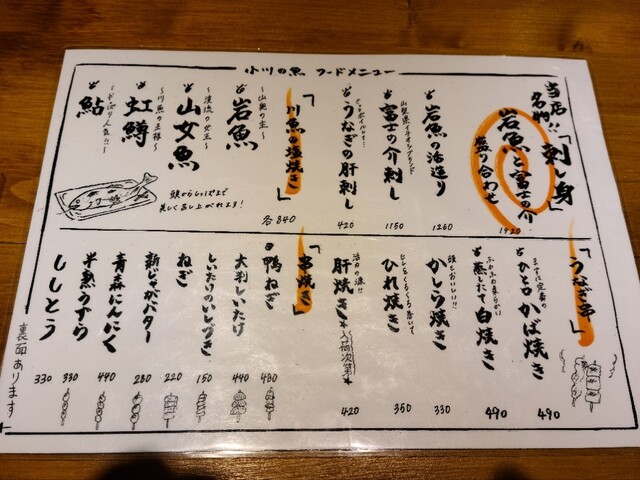 小川の魚 フードメニュー
当店名物!!「刺し身」
岩魚と富士の介
盛り合わせ
1920
岩魚の活造り
1260
山梨県イチオシブランド
富士の介刺し
1150
うなぎの肝刺し
420
「川魚の塩焼き」
各840
〜山奥の主〜
岩魚
〜渓流の女王〜
山女魚
〜川魚の王様〜
虹鱒
〜やっぱり人気!!〜
鮎
頭からしっぽまで
美しくお召し上がれます!
「うなぎ串」
まずは定番の
ひと口かば焼き
490
ふわふわやわらかい
蒸したて白焼き
490
頭もおいしい!!
かしら焼き
330
ひれ焼き
350
肝焼き
*入荷次第*
420
「串焼き」
鴨ねぎ
430
大判しいたけ
440
しいたけのいしづき
150
ねぎ
220
新じゃがバター
280
青森にんにく
440
半熟うずら
330
ししとう
330
裏面あります